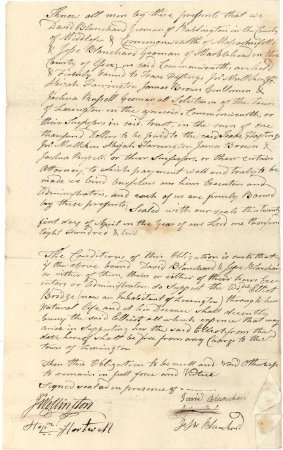 Know all men by these presents that we
David Blanchard Yeoman of Watlington in the County
of Middlesex & Commonwealth of Massachusetts
& Jesse Blanchard Yeoman, of Marblehead in the
County of Essex, in said Commonwealth are held
& firmly bound to Isaac Hastings
Abijah Harrington, James Brown Gentlemen &
Joshua Russell Yeoman all Selectmen of the Town
of Lexington in the County & Commonwealth, or
their Successors in said trust, in the sum of one
thousand Dollars to be paid to the said Isaac Hastings
Abijah Harrington, James Brown &
Joshua Russell or their Successors, or their certain
Attorney, to which payment well and truly to be
made we bind ourselves our heirs Executors and
Administrators, and each of us firmly
by these presents. Sealed with our seals this twenty
first day of April in the Year of our Lord one thousand
Eight Hundred &
The Conditions of this Obligation is such that
if the above bound David Blanchard & Jesse Blanchard
or either of them, their or either of their Heirs Exec-
utors or Administrators do Support the
Bridge (now an Inhabitant of Lexington) through his
Natural Life and at his Decease shall decently
bury the said so that whatever expence that may
arise in Supporting him the said from the
date hereof shall be free from any Charge to the
Town of Lexington
Then this Obligation to be null and void Otherwise
to remain in full force and Virtue
Signed sealed in presence of
David Blanchard
Wellington
Jesse Blanchard